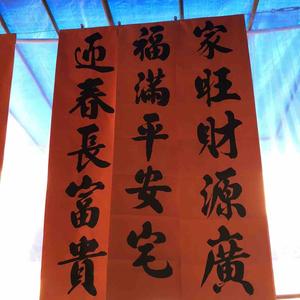 家旺財源廣
福滿平安宅
迎春長富貴